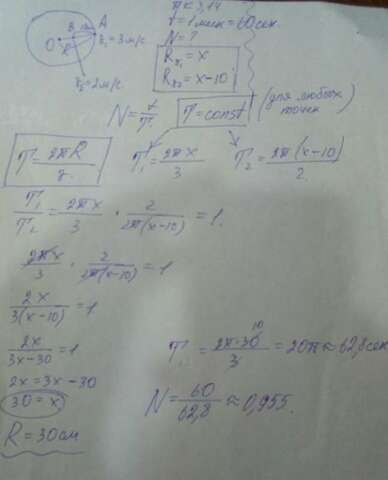 π = 3,14
t = 1 мин = 60 сек
N = ?
A
O
R
υ₁ = 3 м/с
υ₂ = 2 м/с
R_x₁ = x
R_x₂ = x-10
N = t/T
T = const (для любых точек)
T = 2πR/υ
T₁ = 2πx/3
T₂ = 2π(x-10)/2
T₁/T₂ = 2πx/3 · 2/2π(x-10) = 1.
2πx/3 · 2/2π(x-10) = 1
2x/3(x-10) = 1
2x/3x-30 = 1
2x = 3x - 30
30 = x
R = 30 см
T₁ = 2π·30/3 = 20π ≈ 62,8 сек
10
N = 60/62,8 ≈ 0,955.